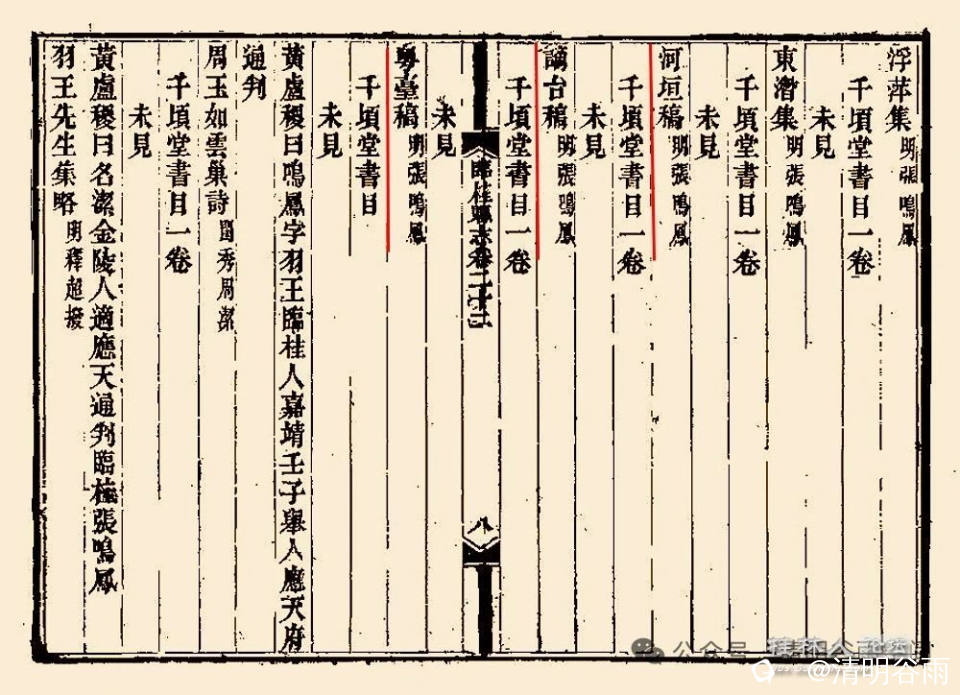 浮萍集 明張鳴鳳
千頃堂書目一卷
未見
東潛集 明張鳴鳳
千頃堂書目一卷
未見
河垣稿 明張鳴鳳
千頃堂書目一卷
未見
謫台稿 明張鳴鳳
千頃堂書目一卷
未見
臨桂縣志卷二十二
八
粵臺稿 明張鳴鳳
千頃堂書目
未見
黃虞稷曰鳴鳳字羽王臨桂人嘉靖壬子舉人應天府
通判
周玉如雲巢詩 閨秀周潔
千頃堂書目一卷
未見
黃虞稷曰名潔金陵人適應天通判臨桂張鳴鳳
羽王先生集略 明釋超撥
公众号
@清明谷雨